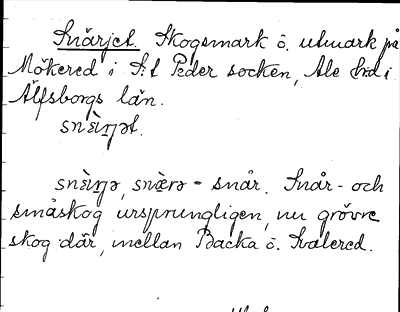 Snärjet. Skogsmark o. utmark på
Mökered i S:t Peder socken, Ale hd i
Älfsborgs län.
snär - snår. Snår- och
småskog ursprungligen, nu grövre
skog där, mellan Backa o. Svalered.